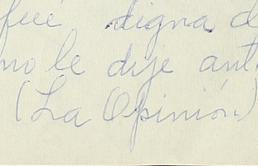 fué digna d
no le dije ant
(La Opinión)